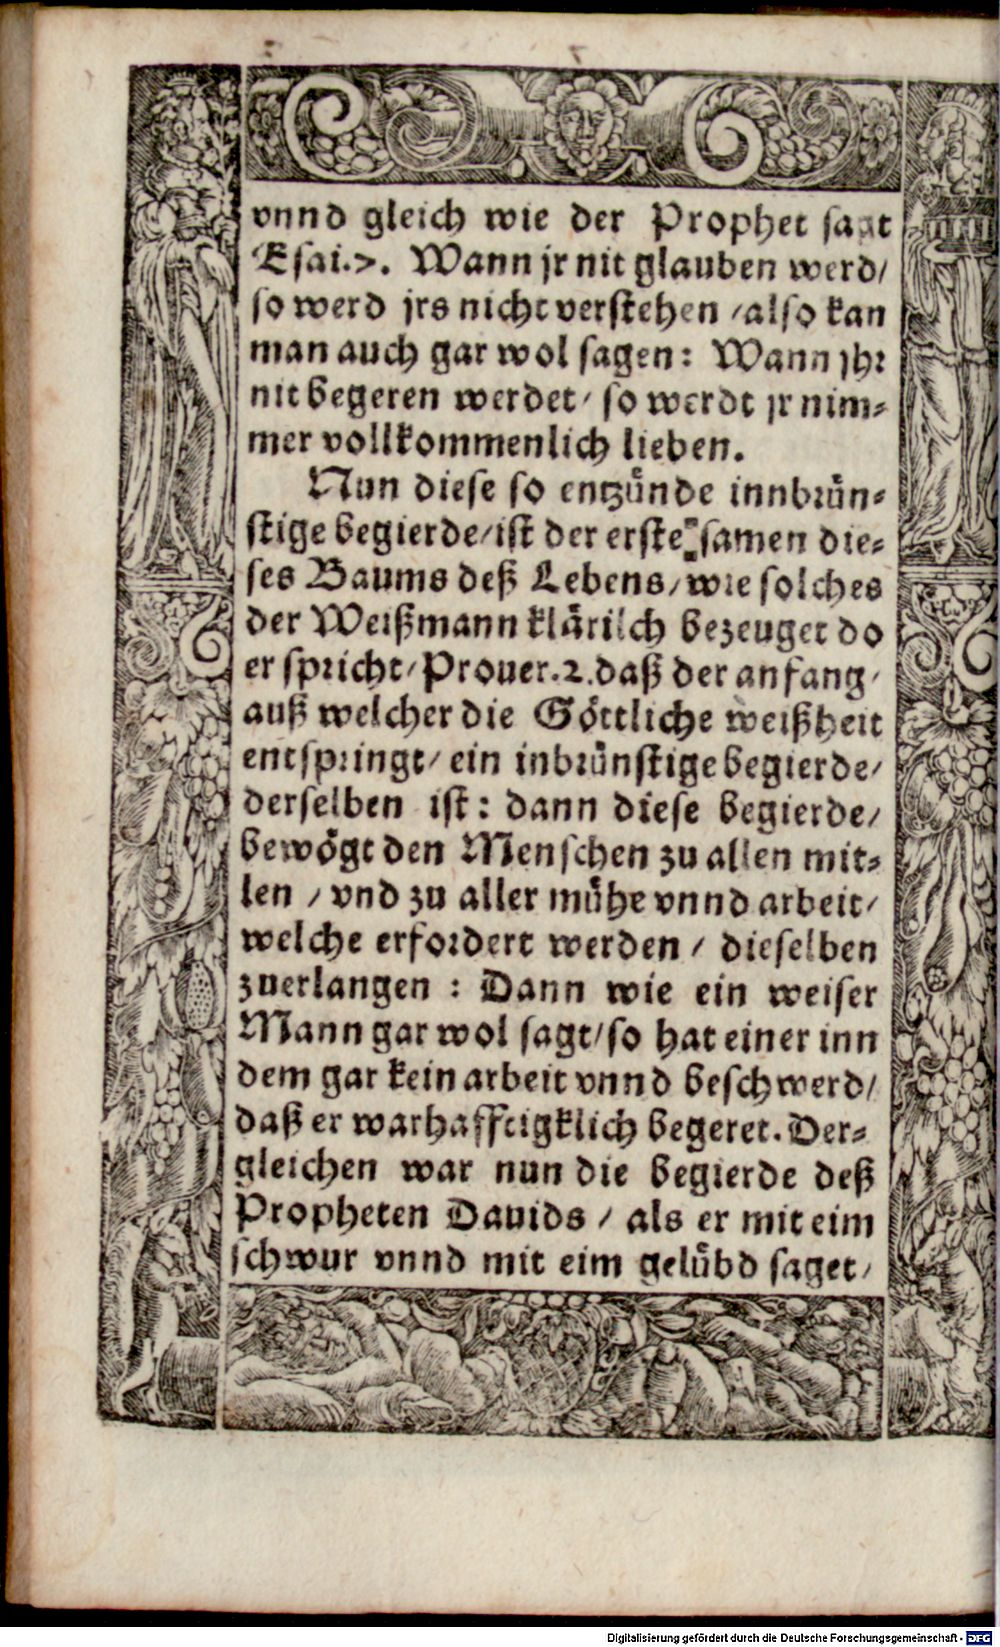 vnnd gleich wie der Prophet sagt
Esai.7. Wann jr nit glauben werd/
so werd jrs nicht verstehen / also kan
man auch gar wol sagen: Wann jhr
nit begeren werdet / so werdt jr nim-
mer vollkommenlich lieben.
Nun diese so entzünde innbrün-
stige begierde / ist der erste samen die-
ses Baums deß Lebens / wie solches
der Weißmann klärilch bezeuget do
er spricht / Prouer.2. daß der anfang /
auß welcher die Göttliche weißheit
entspringt / ein inbrünstige begierde /
derselben ist: dann diese begierde /
bewögt den Menschen zu allen mit-
len / vnd zu aller mühe vnnd arbeit /
welche erfordert werden / dieselben
zuerlangen : Dann wie ein weiser
Mann gar wol sagt / so hat einer inn
dem gar kein arbeit vnnd beschwerd /
daß er warhafftigklich begeret. Der-
gleichen war nun die begierde deß
Propheten Dauids / als er mit eim
schwur vnnd mit eim gelübd saget /
Digitalisierung gefördert durch die Deutsche Forschungsgemeinschaft - DFG